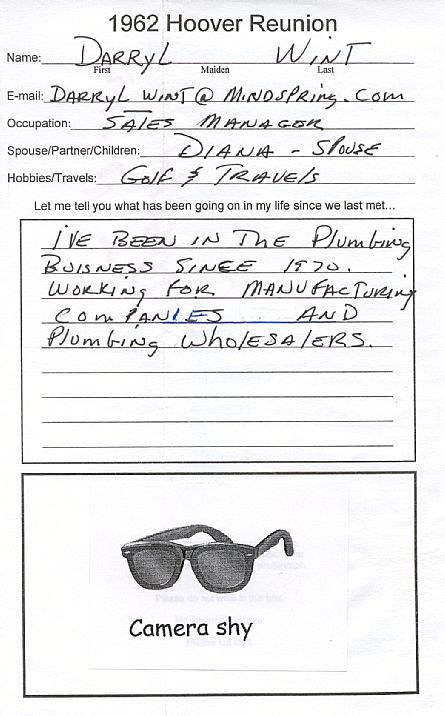 1962 Hoover Reunion
Name: DARRYL WINT
First Maiden Last
E-mail: DARRYL WINT@MINDSPRING.COM
Occupation: SALES MANAGER
Spouse/Partner/Children: DIANA - SPOUSE
Hobbies/Travels: GOlF & TRAVElS
Let me tell you what has been going on in my life since we last met...
I'VE BEEN IN THE PlumbIng
BUISNESS SINCE 1970.
WORKING FOR MANUFACTURING
COMPANIES AND
PlumbIng WholESAlERS.
Camera shy